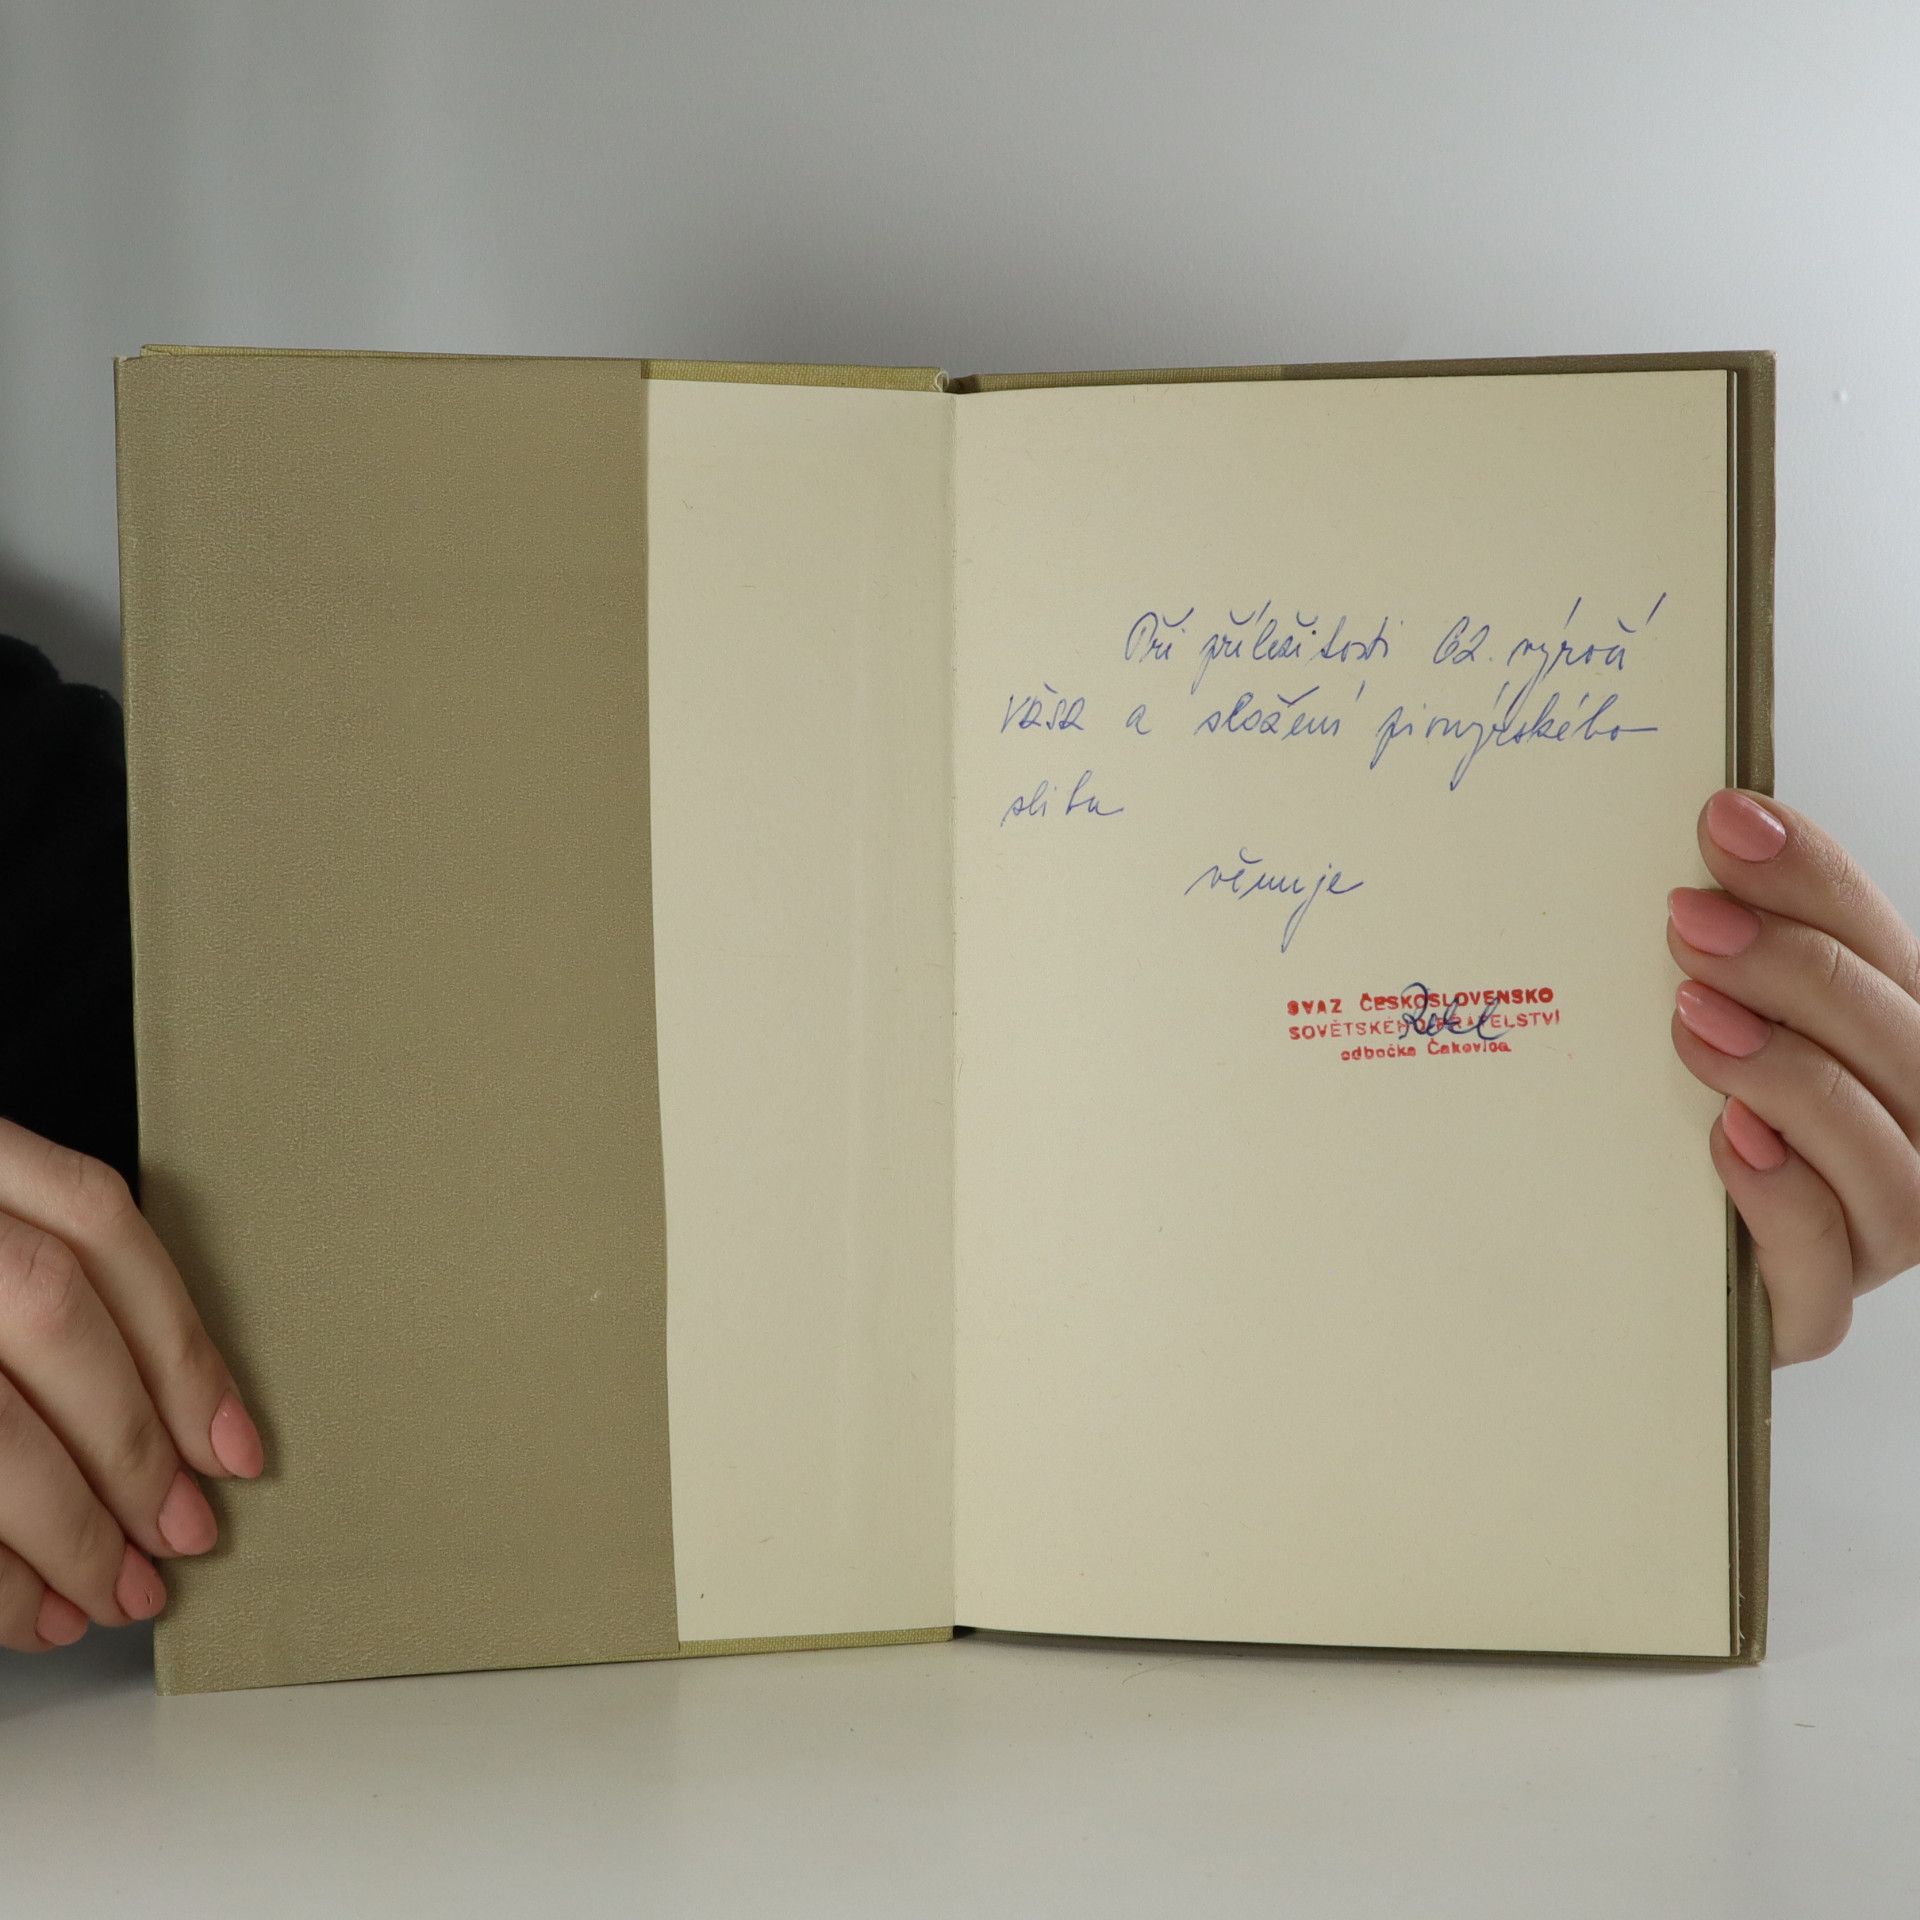 Při příležitosti 62. výročí
VŘSR a složení pionýrského
slibu
věnuje
SVAZ ČESKOSLOVENSKO
SOVĚTSKÉHO PŘÁTELSTVÍ
odbočka Čakovice